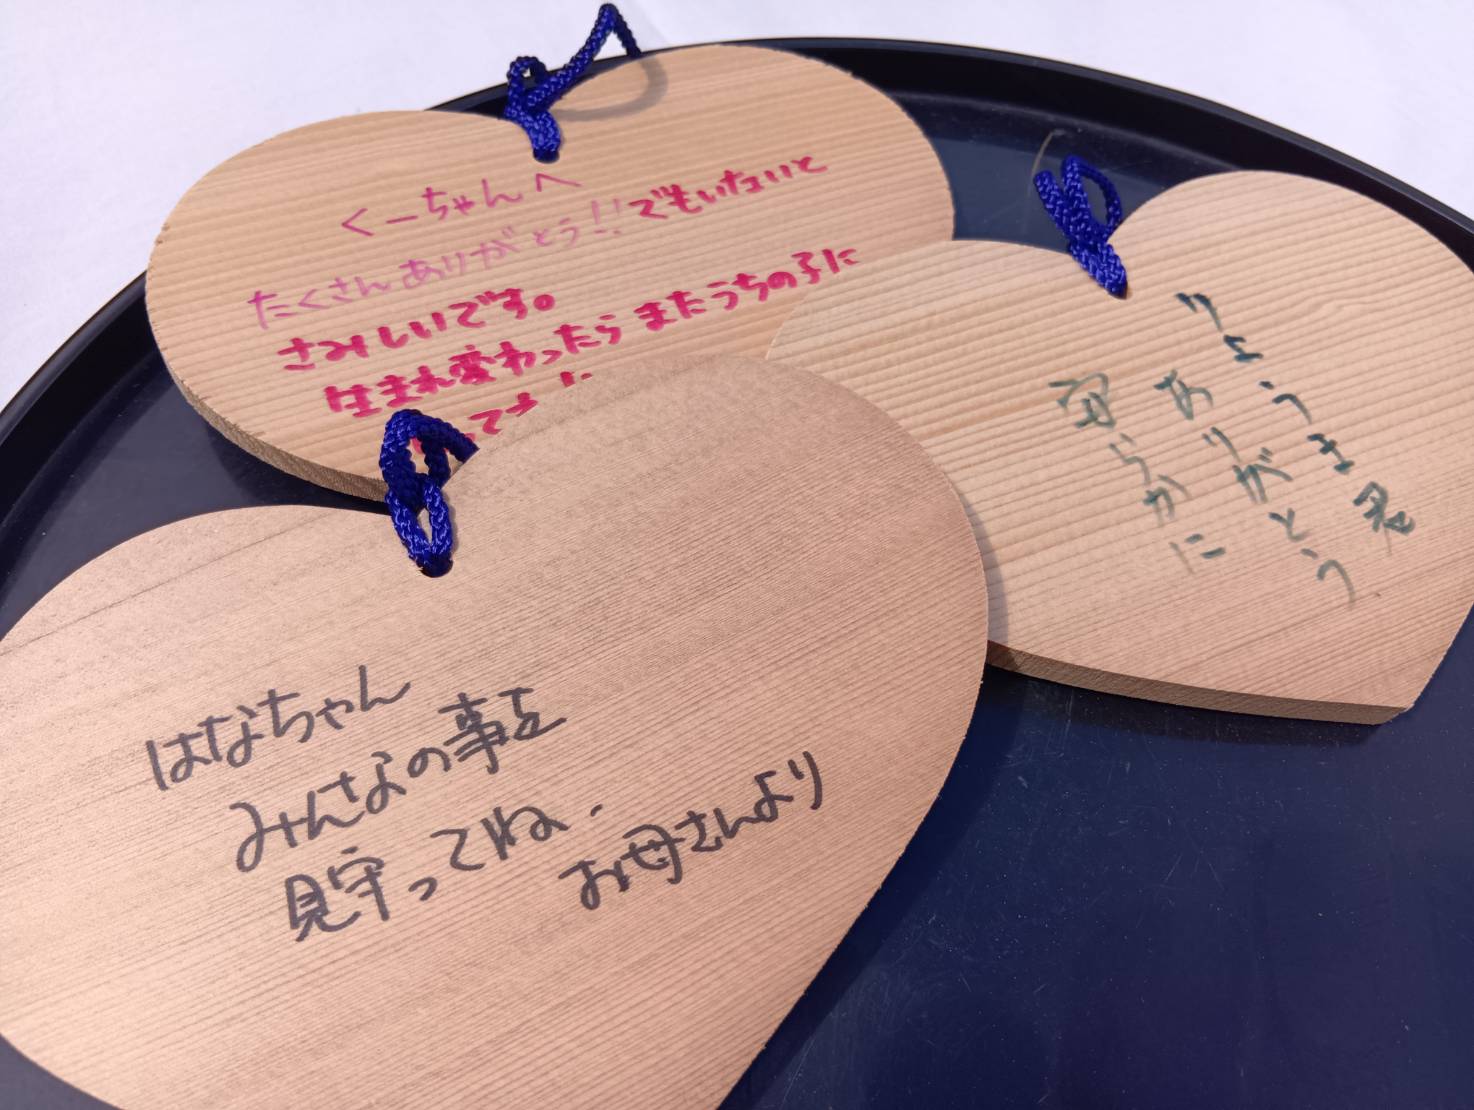 くーちゃんへ
たくさんありがとう!!でもいないと
さみしいです。
生まれ変わったら またうちの子に
りょうま君
ありがとう
安らかに
はなちゃん
みんなの事を
見守ってね.
お母さんより